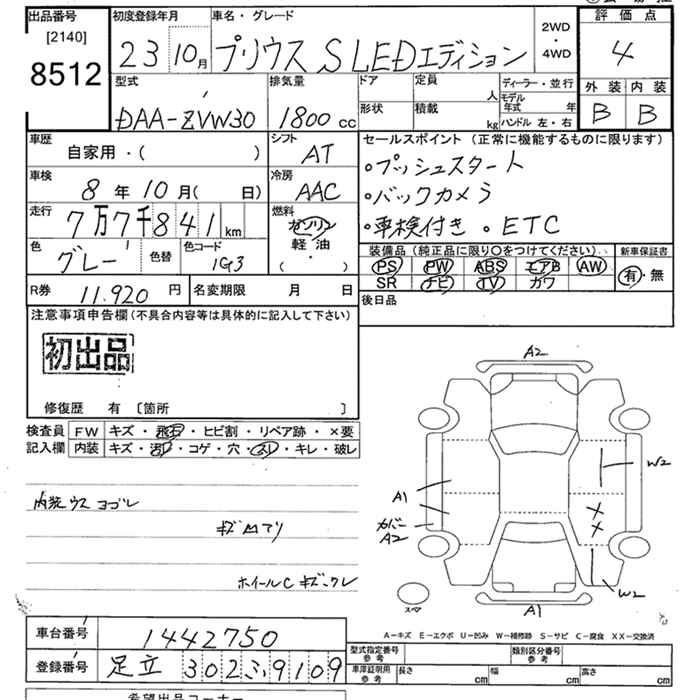 出品番号
[2140]
8512
初度登録年月
23 10月
車名・グレード
プリウス S LEDエディション
2WD
・
4WD
評価点
4
外装 内装
B B
型式
DAA-ZVW30
排気量
1800 cc
ドア
形状
定員 人
積載 kg
ディーラー・並行
モデル年式 年
ハンドル 左・右
車歴
自家用・( )
シフト
AT
車検
8年10月( 日)
冷房
AAC
走行
7万7千841 km
燃料
ガソリン
軽油
( ・ )
色
グレー
色替
色コード
1G3
セールスポイント(正常に機能するものに限ります)
・プッシュスタート
・バックカメラ
・車検付き ・ETC
装備品(純正品に限り〇をつけてください)
PS PW ABS エアB AW
SR ナビ TV カワ
新車保証書
有・無
R券 11,920 円
名変期限 月 日
後日品
注意事項申告欄(不具合内容等は具体的に記入して下さい)
初出品
修復歴 有 [箇所 ]
検査員記入欄
FW キズ・飛石・ヒビ割・リペア跡・×要
内装 キズ・汚れ・コゲ・穴・スレ・キレ・破レ
内装ウスヨゴレ
キズ凹アリ
ホイールC キズ・スレ
A2
W2
A1
カバー
A2
X
X
W2
A1
スペア
A-キズ E-エクボ U-凹み W-補修跡 S-サビ C-腐食 XX-交換済
車台番号 1442750
登録番号 足立 302ふ9109
型式指定番号
参考
類別区分番号
参考
車庫証明用
参考
長さ cm 幅 cm 高さ cm
希望出品コーナー